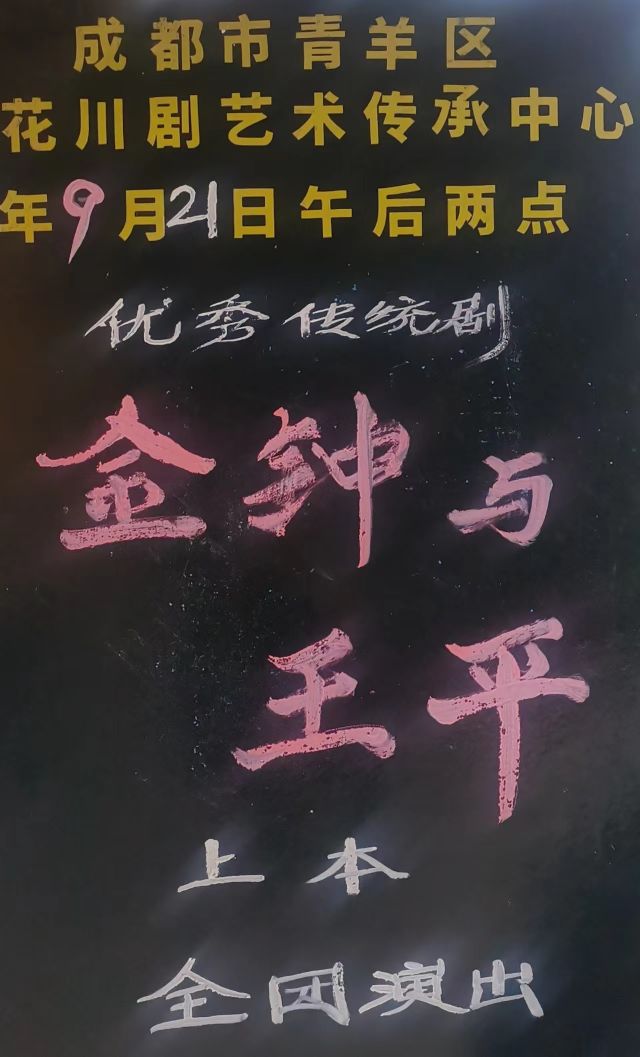 成都市青羊区
花川剧艺术传承中心
年9月21日午后两点
优秀传统剧
金钟与
王平
上本
全团演出